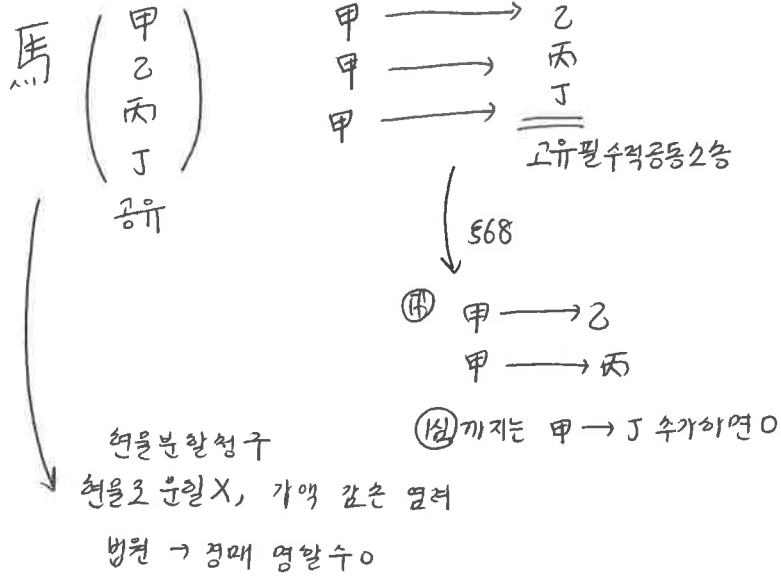 馬
甲
乙
丙
丁
공유
甲 → 乙
甲 → 丙
甲 → 丁
고유필수적공동소송
§68
甲 → 乙
甲 → 丙
1심 까지는 甲 → 丁 추가하면 O
현물분할청구
현물로 분할 X, 가액 감손 염려
법원 → 경매 명할 수 O